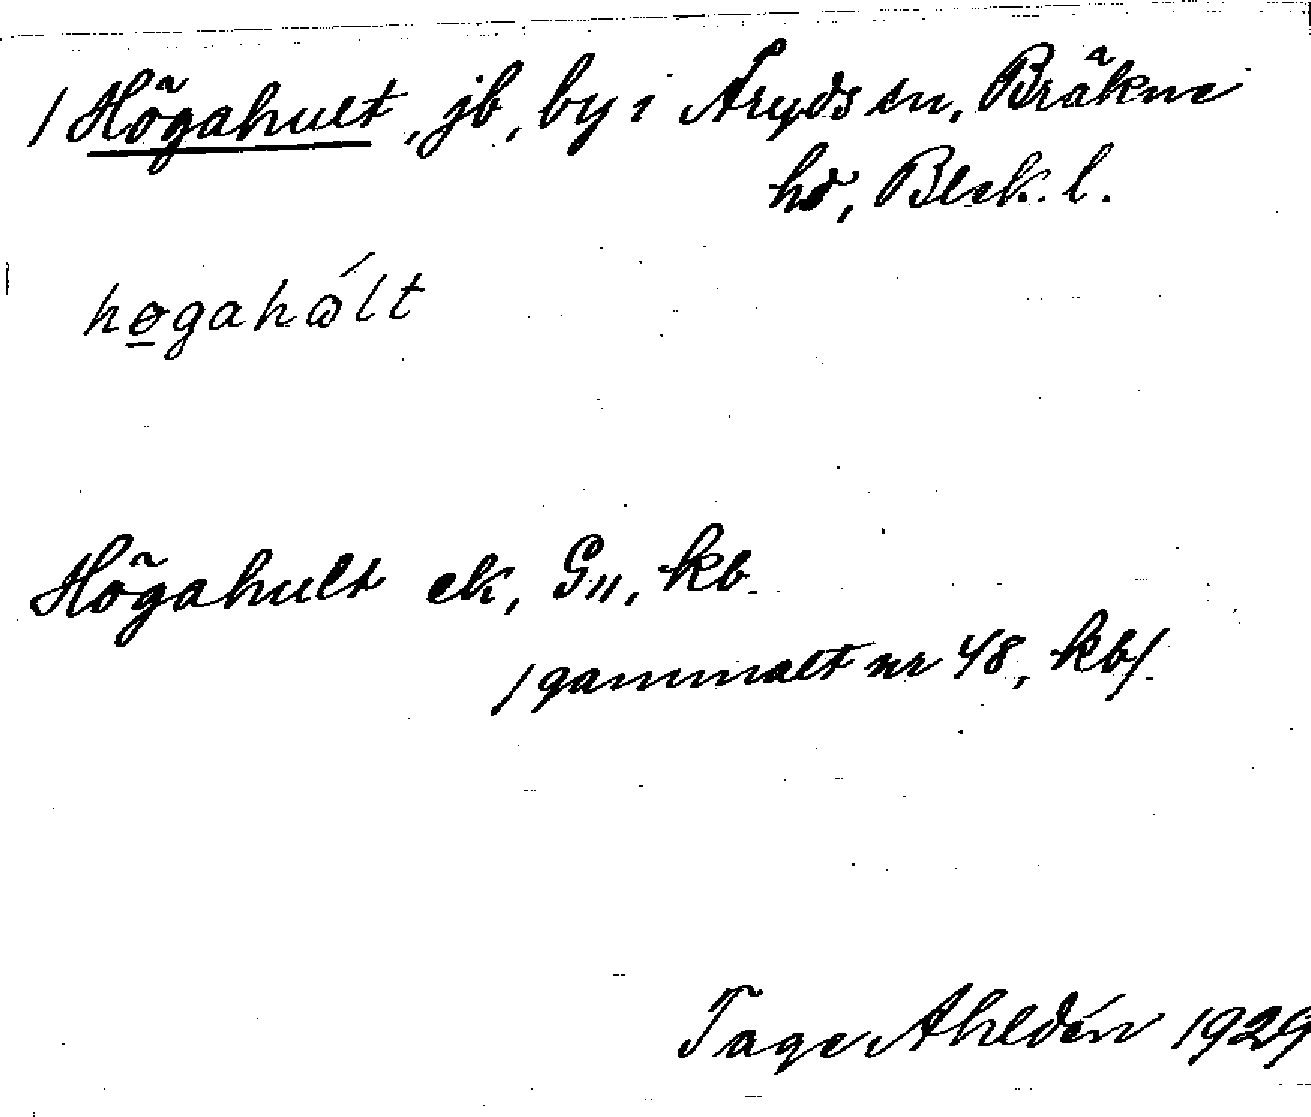 / Högahult, jb, by i Åryds sn, Bräkne
hd, Blek. l.
høgahώlt
Högahult ek, G11, kb.
/ gammalt nr 48, kb/.
Tage Ahldén 1929